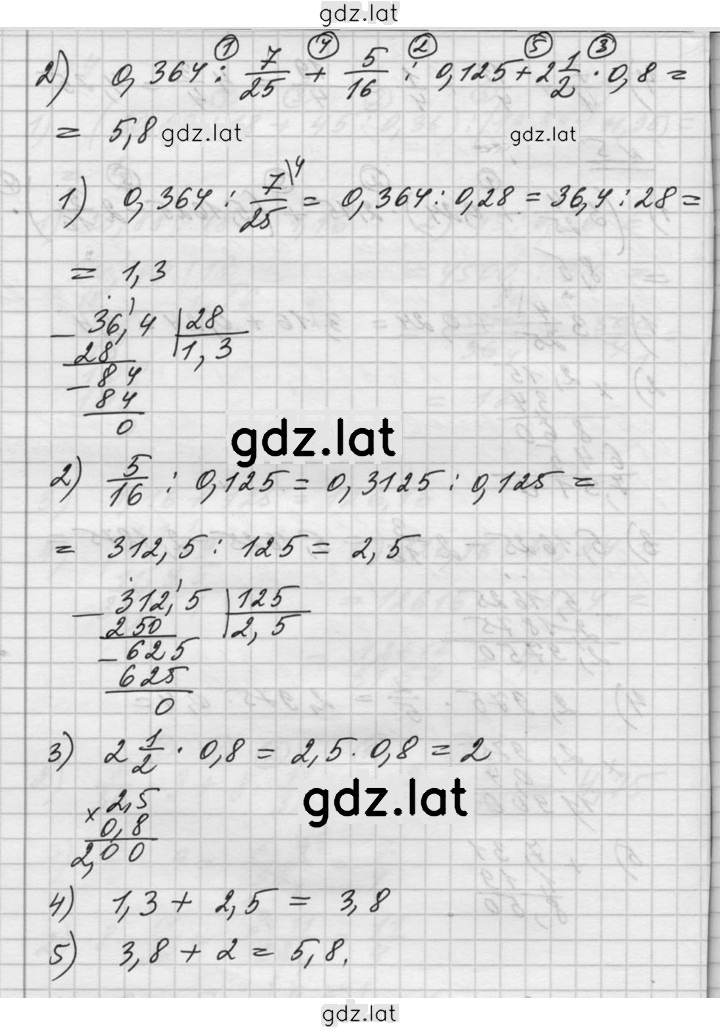 gdz.lat
① ④ ② ⑤ ③
2) 0,364 : 7/25 + 5/16 : 0,125 + 2 1/2 · 0,8 =
= 5,8 gdz.lat gdz.lat
1) 0,364 : 7/25 \4 = 0,364 : 0,28 = 36,4 : 28 =
= 1,3
- 36,4 | 28
28 | 1,3
- 84
84
0
gdz.lat
2) 5/16 : 0,125 = 0,3125 : 0,125 =
= 312,5 : 125 = 2,5
- 312,5 | 125
250 | 2,5
- 625
625
0
3) 2 1/2 · 0,8 = 2,5 · 0,8 = 2
gdz.lat
× 2,5
0,8
2,00
4) 1,3 + 2,5 = 3,8
5) 3,8 + 2 = 5,8.
gdz.lat